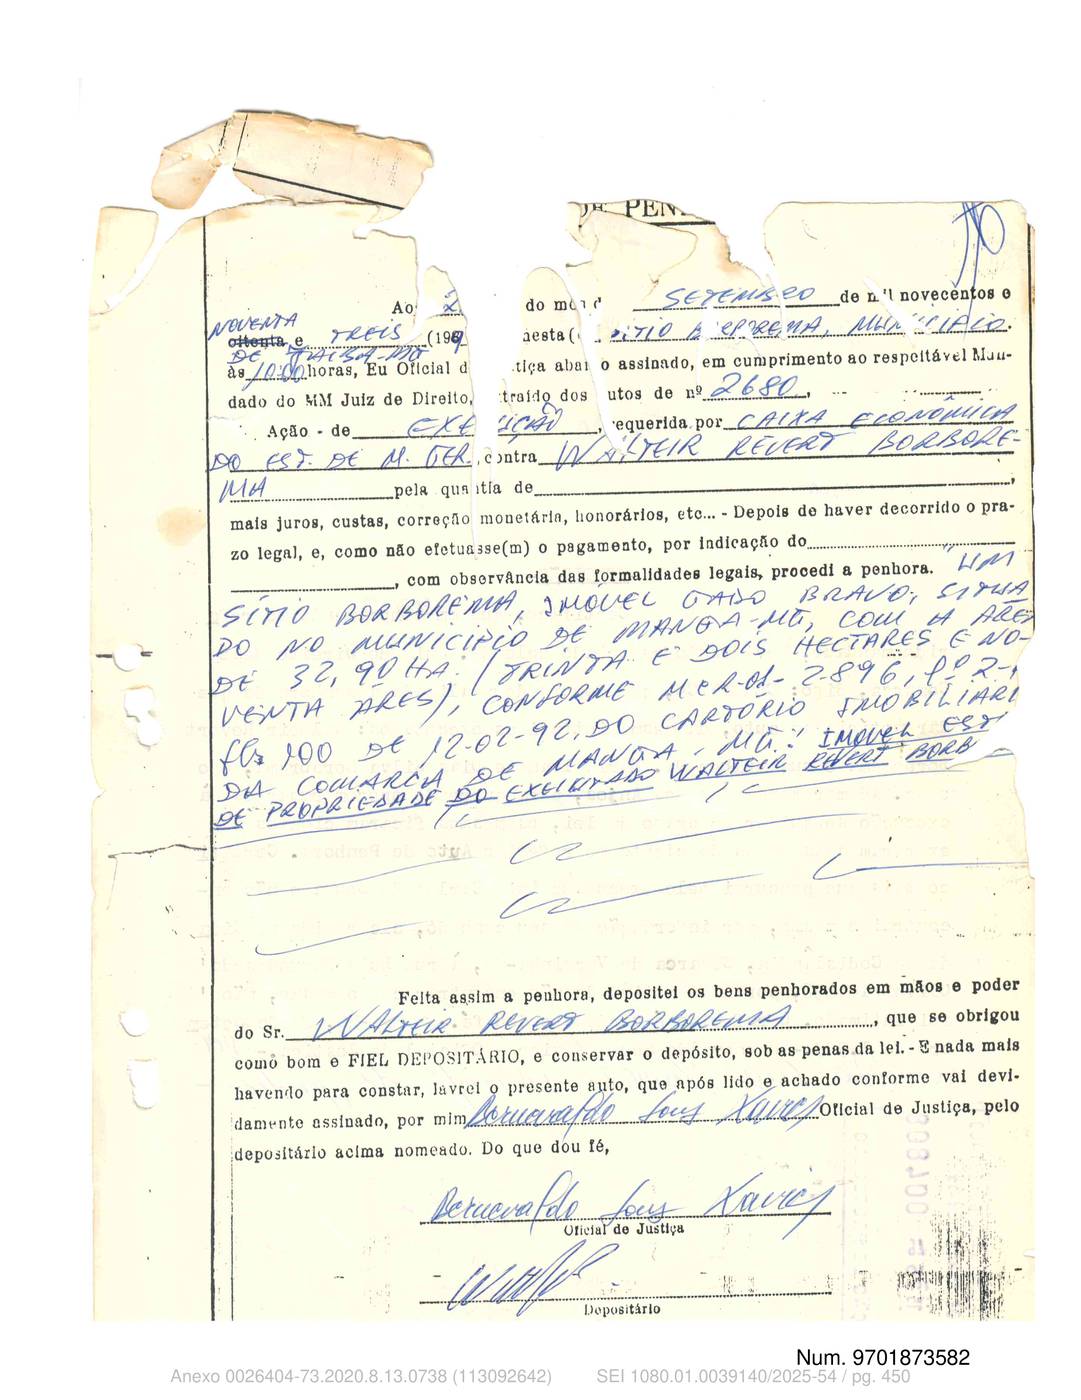 DE PEN
Ao 2 do mês d SETEMBRO de mil novecentos e
NOVENTA
oitenta e TREIS (199 nesta( SÍTIO BORBOREMA, MUNICÍPIO
DE
às 10:00 horas, Eu Oficial d tiça abai o assinado, em cumprimento ao respeitável Man-
dado do MM Juiz de Direito, traído dos utos de nº 2680,
Ação - de EXECUÇÃO, requerida por CAIXA ECONÔMICA
DO EST. DE M. GER. contra WALTEIR REVERT BORBORE-
MA pela quantia de ,
mais juros, custas, correção monetária, honorários, etc... - Depois de haver decorrido o pra-
zo legal, e, como não efetuasse(m) o pagamento, por indicação do
, com observância das formalidades legais, procedi a penhora. "UM
SÍTIO BORBOREMA, IMÓVEL GADO BRAVO, SITUA
DO NO MUNICÍPIO DE MANGA-MG, COM A ÁREA
DE 32,90 HA. (TRINTA E DOIS HECTARES E NO-
VENTA ÁRES), CONFORME 2-896, 2-
fls 100 DE 12-02-92, DO CARTÓRIO IMOBILIÁRI
DA COMARCA DE MANGA - MG." IMÓVEL EST
DE PROPRIEDADE DO EXECUTADO WALTEIR REVERT BORB
Feita assim a penhora, depositei os bens penhorados em mãos e poder
do Sr. WALTEIR REVERT BORBOREMA, que se obrigou
como bom e FIEL DEPOSITÁRIO, e conservar o depósito, sob as penas da lei. - E nada mais
havendo para constar, lavrei o presente auto, que após lido e achado conforme vai devi-
damente assinado, por mim Xavier Oficial de Justiça, pelo
depositário acima nomeado. Do que dou fé,
Xavier
Oficial de Justiça
Depositário
Num. 9701873582
Anexo 0026404-73.2020.8.13.0738 (113092642) SEI 1080.01.0039140/2025-54 / pg. 450